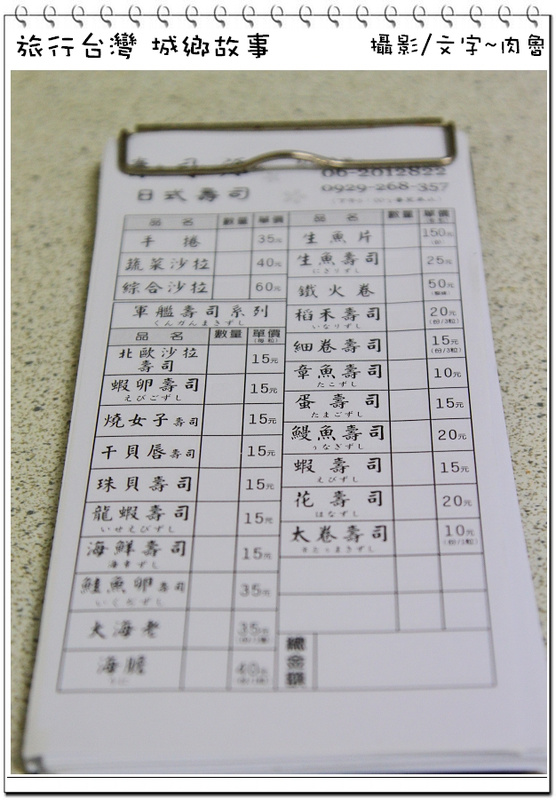 旅行台灣 城鄉故事
攝影/文字~肉魯
06-2012822
日式壽司
0929-268-357
品名 數量 單價
手捲 35元
蔬菜沙拉 40元
綜合沙拉 60元
軍艦壽司系列
くんかんまきずし
品名 數量 單價
(每粒)
北歐沙拉壽司 15元
蝦卵壽司 15元
えびごずし
燒女子壽司 15元
干貝唇壽司 15元
珠貝壽司 15元
龍蝦壽司 15元
いせえびずし
海鮮壽司 15元
鮭魚卵壽司 35元
いくらずし
大海老 35元
海膽 40元
品名 數量 單價
生魚片 150元
生魚壽司 25元
にぎりずし
鐵火卷 50元
稻禾壽司 20元
いなりずし (份/2粒)
細卷壽司 15元
(份/3粒)
章魚壽司 10元
たこずし
蛋壽司 15元
たまごずし
鰻魚壽司 20元
うなぎずし
蝦壽司 15元
えびずし
花壽司 20元
はなずし
太卷壽司 10元
總金額